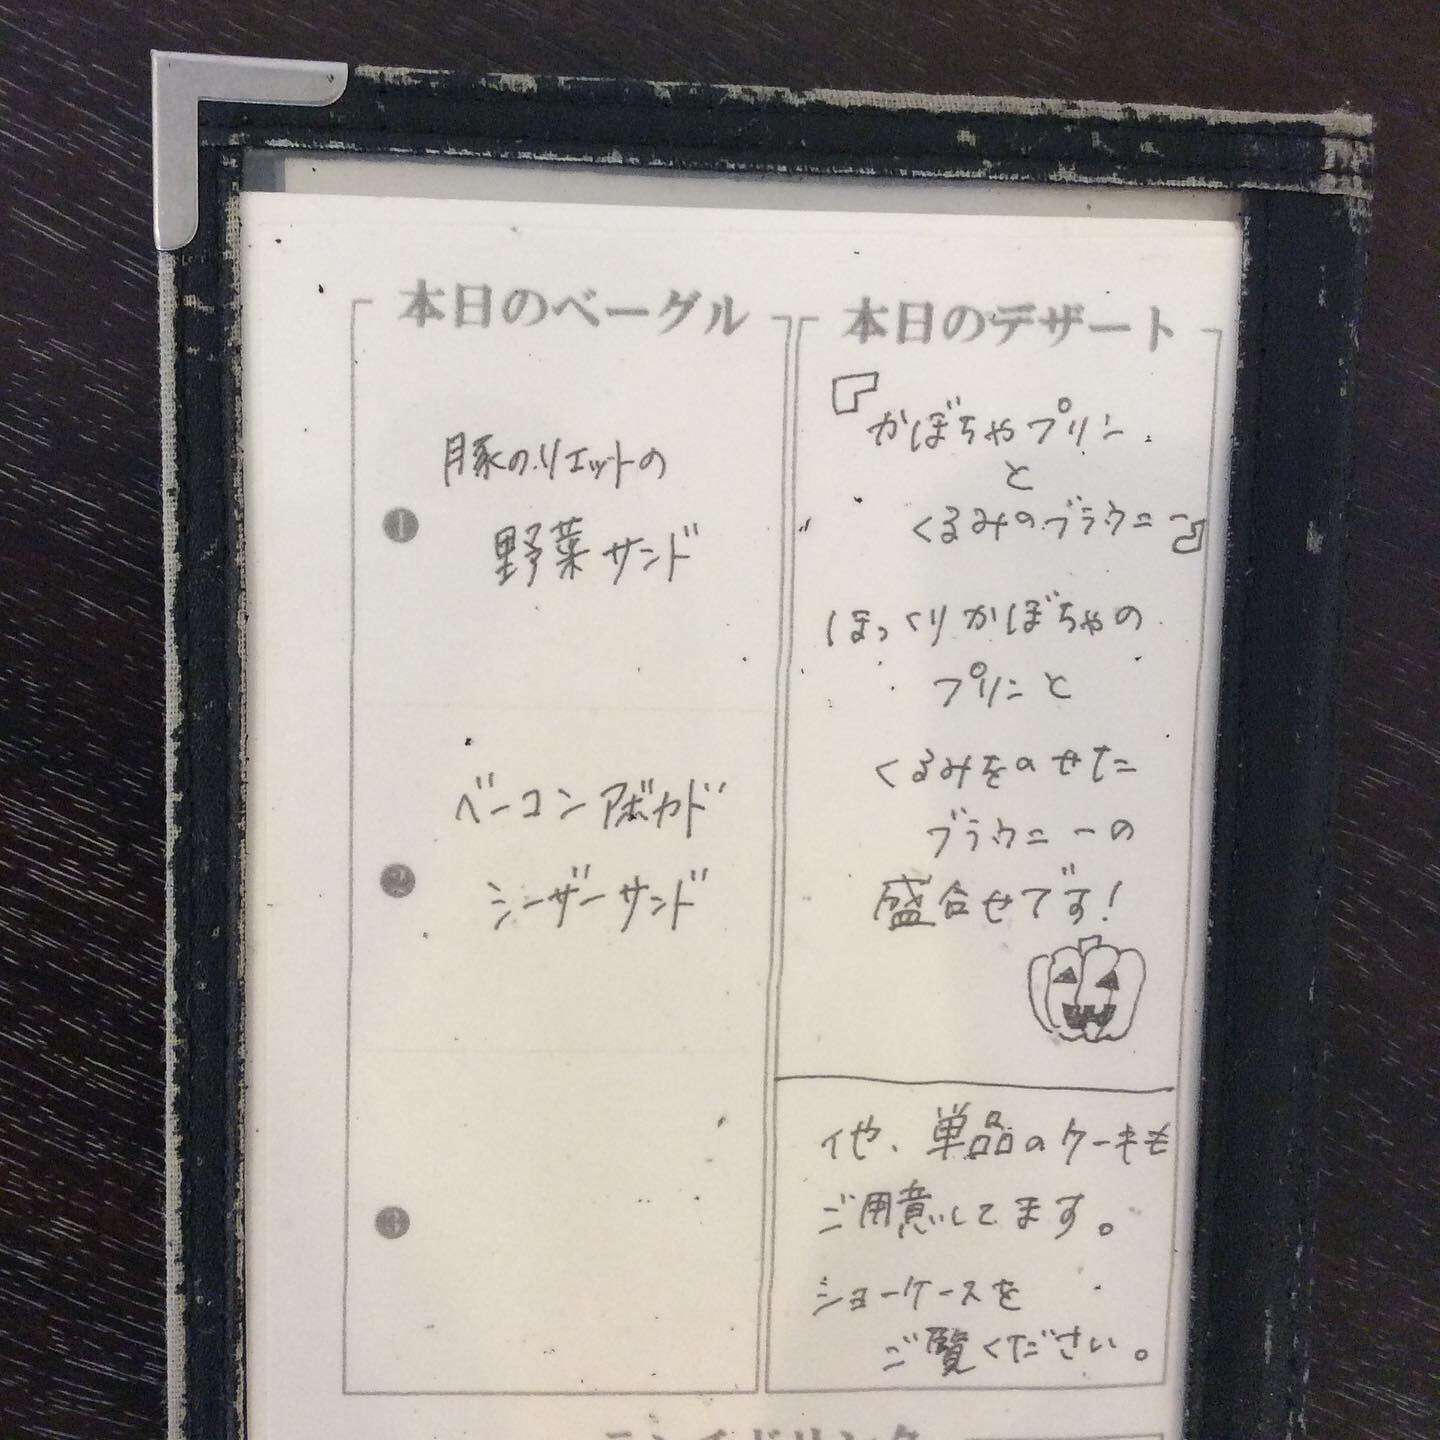 本日のベーグル
1
豚のリエットの
野菜サンド
2
ベーコンアボカド
シーザーサンド
3
本日のデザート
『かぼちゃプリン
と
くるみのブラウニー』
ほっくりかぼちゃの
プリンと
くるみをのせた
ブラウニーの
盛合せです!
他、単品のケーキも
ご用意してます。
ショーケースを
ご覧ください。
ランチドリンク